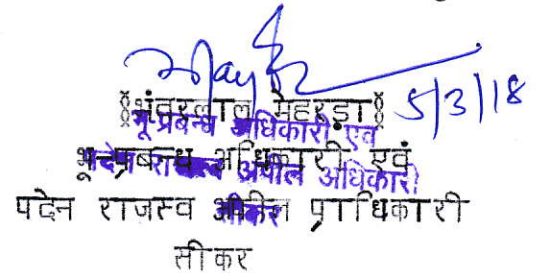 5/3/18
भंवरलाल मेहरड़ा
भू प्रबन्ध अधिकारी एवं
भू-प्रबन्ध अधिकारी एवं
पदेन राजस्व अपील अधिकारी
पदेन राजस्व अपील प्राधिकारी
सीकर
सीकर